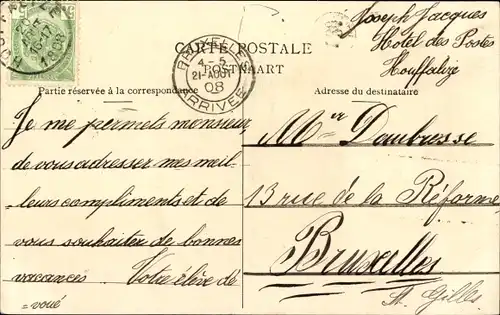 HOUFFALIZE
20 AOUT
16-17
1908
CARTE POSTALE
POSTKAART
BRUXELLES
4-5
21-AOUT
08
ARRIVEE
Joseph Jacques
Hôtel des Postes
Houffalize
Partie réservée à la correspondance
Je me permets monsieur
de vous adresser mes meil-
leurs compliments et de
vous souhaiter de bonnes
vacances. Votre élève dé-
-voué
Adresse du destinataire
Mr Daubresse
13 rue de la Réforme
Bruxelles
St Gilles